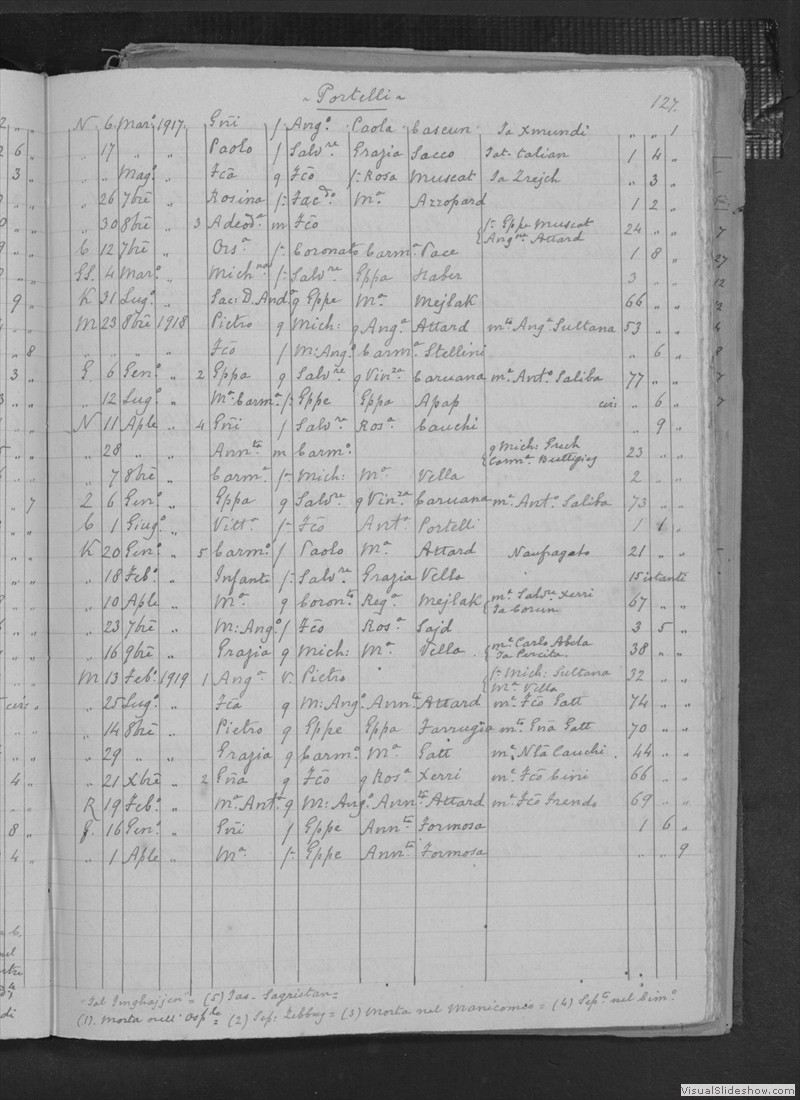 ~ Portelli ~
127.
N. 6 Marº. 1917. Gñi f. Angº. Paola Cascun Ta Xmundi „ „ 1
„ 17 „ „ Paolo f. Salvre Grazia Sacco Tat-talian 1 4 „
„ „ Magº. „ Fcã q Fcõ f. Rosa Muscat Ta Zrejch „ 3 „
„ 26 7bre „ Rosina f. Mª Azzopard 1 2 „
„ 30 8bre „ 3 Adeodª m Fcõ { f. Gppe Muscat 24 „ „
Attard
C 12 7bre „ Orsª f. Coronato Carmª Pace 1 8 „
SS. 4 Marº. „ f. Salvre Gppa Haber 3 „ „
K 31 Lugº. „ Sac: D. Andº q Gppe Mª Mejlak 66 „ „
M 23 8bre 1918 Pietro q Mich: q Angª Attard mto Angª Sultana 53 „ „
„ „ „ „ Fcõ f M: Angº Carmª Stellini „ 6 „
G. 6 Genº. „ 2 Gppa q Salvre q Vinza Caruana mª Antº Saliba 77 „ „
„ 12 Lugº. „ Mª Carmª f. Gppe Gppa Apap cis „ 6 „
N 11 Aple „ 4 Gñi f Salvre Rosª Cauchi „ 9 „
„ 28 „ „ Annta m Carmº. { q Mich: Grech 23 „ „
Carmª Buttigieg
„ 7 8bre „ Carmª f. Mich: Mª Vella 2 „ „
Z 6 Genº. „ Gppa q Salvre q Vinza Caruana mª Antº Saliba 73 „ „
C 1 Giugº. „ Vittª f. Fcõ Antª Portelli 1 1 „
K 20 Genº „ 5 Carmº f Paolo Mª Attard Naufragato 21 „ „
„ 18 Febº. „ Infante f. Salvre Grazia Vella 15 istanti
„ 10 Aple „ Mª q Coronto Regª Mejlak { mª Salvre Xerri 67 „ „
Ta Corun
„ 23 7bre „ M: Angº f Fcõ Rosª Sajd 3 5 „
„ 16 9bre „ Grazia q Mich: Mª Vella . { mª Carlo Abela 38 „ „
M 13 Febº. 1919 1 Angª v. Pietro { f. Mich: Sultana 32 „ „
Mª Vella
„ 25 Lugº. „ Fcã q M: Angº. Annta Attard mª Fcõ Gatt 74 „ „
„ 14 8bre „ Pietro q Gppe Gppa Farrugia mto Gñã Gatt 70 „ „
„ 29 „ „ Grazia q Carmº. Mª Gatt mª Nlã Cauchi . 44 „ „
„ 21 Xbre „ 2 Gñã q Fcõ q Rosª Xerri mª Fcõ Cini 66 „ „
R 19 Febº. „ Mª Antª q M: Angº. Annta Attard mª Fcõ Frendo 69 „ „
16 Genº. „ Gñi f Gppe Annta Formosa 1 6 „
„ 1 Aple „ Mª f. Gppe Annta Formosa „ „ 9
Tal Imghajjen = (5) Tas-Sagristan =
(1). Morta nell' Osple = (2) Sep: Zebbug = (3) Morta nel Manicomio = (4) Septº nel Cimº.
VisualSlideshow.com